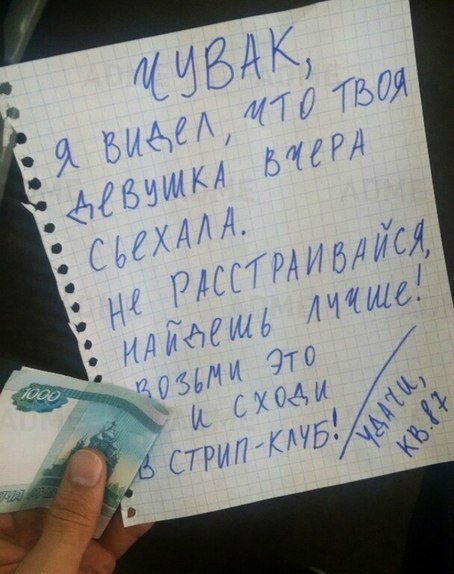 ЧУВАК,
Я ВИДЕЛ, ЧТО ТВОЯ
ДЕВУШКА ВЧЕРА
СЬЕХАЛА.
НЕ РАССТРАИВАЙСЯ,
НАЙДЕШЬ ЛУЧШЕ!
ВОЗЬМИ ЭТО
И СХОДИ
В СТРИП-КЛУБ!
УДАЧИ,
КВ.87
1000